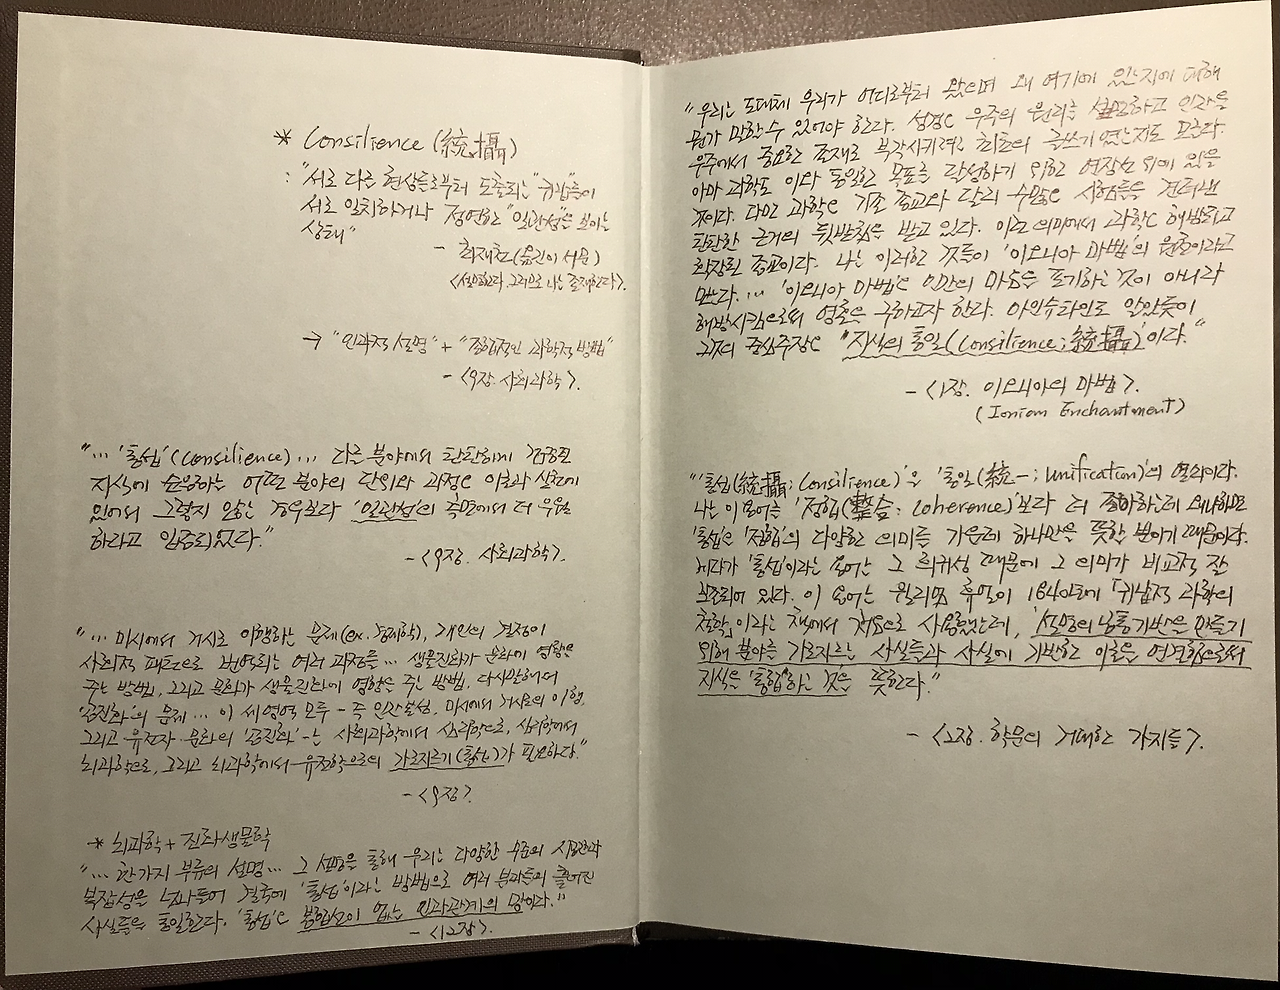 * Consilience (統攝)
: "서로 다른 현상들로부터 도출되는 "귀납"들이
서로 일치하거나 정연한 "일관성"을 보이는
상태"
- 최재천(옮긴이 서문)
<설명한다. 그러므로 나는 존재한다>.
→ "인과적 설명" + "종합적인 과학적 방법"
- <9장. 사회과학>.
"… '통섭'(consilience) … 다른 분야에서 탄탄하게 검증된
지식에 순응하는 어떤 분야의 단위와 과정은 이론과 실천에
있어서 그렇지 않은 경우보다 '일관성'의 측면에서 더 우월
하다고 입증되었다."
- <9장. 사회과학>.
"… 미시에서 거시로 이행하는 문제(ex. 경제학), 개인의 결정이
사회적 패턴으로 번역되는 여러 과정들 … 생물진화가 문화에 영향을
주는 방법, 그리고 문화가 생물진화에 영향을 주는 방법, 다시말해서
'공진화'의 문제 … 이 세영역 모두 - 즉 인간본성, 미시에서 거시로의 이행,
그리고 유전자·문화의 '공진화' - 는 사회과학에서 심리학으로, 심리학에서
뇌과학으로, 그리고 뇌과학에서 유전학으로의 가로지르기(통섭)가 필요하다."
- <9장>.
* 뇌과학 + 진화생물학
"… 한가지 부류의 설명 … 그 설명을 통해 우리는 다양한 수준의 시공간과
복잡성을 넘나들어 결국에 '통섭'이라는 방법으로 여러 분과들의 흩어진
사실들을 통일한다. '통섭'은 봉합선이 없는 인과관계의 망이다."
- <12장>.
"우리는 도대체 우리가 어디로부터 왔으며 왜 여기에 있는지에 대해
뭔가 말할 수 있어야 한다. 성경은 우주의 원리를 설명하고 인간을
우주에서 중요한 존재로 부각시키려는 최초의 글쓰기였는지도 모른다.
아마 과학도 이와 동일한 목표를 달성하기 위한 연장선 위에 있을
것이다. 다만 과학은 기존 종교와 달리 수많은 시험들을 견뎌낸
탄탄한 근거의 뒷받침을 받고 있다. 이런 의미에서 과학은 해방되고
확장된 종교이다. 나는 이러한 것들이 '이오니아 마법'의 원천이라고
믿는다. … '이오니아 마법'은 인간의 마음을 포기하는 것이 아니라
해방시킴으로써 영혼을 구하고자 한다. 아인슈타인도 알았듯이
그것의 중심주장은 "지식의 통일(consilience; 統攝)'이다."
- <1장. 이오니아의 마법>.
(Ionian Enchantment)
"'통섭(統攝; consilience)'은 '통일(統一; unification)'의 열쇠이다.
나는 이 용어를 '정합(整合; coherence)'보다 더 좋아하는데 왜냐하면
'통섭'은 '정합'의 다양한 의미들 가운데 하나만을 뜻할 뿐이기 때문이다.
게다가 '통섭'이라는 용어는 그 희귀성 때문에 그 의미가 비교적 잘
보존되어 있다. 이 용어는 윌리엄 휴얼이 1840년에 「귀납적 과학의
철학」이라는 책에서 처음으로 사용했는데, '설명의 공통기반'을 만들기
위해 분야를 가로지르는 사실들과 사실에 기반한 이론을 연결함으로써
지식을 '통합'하는 것을 뜻한다."
- <2장. 학문의 거대한 가지들>.